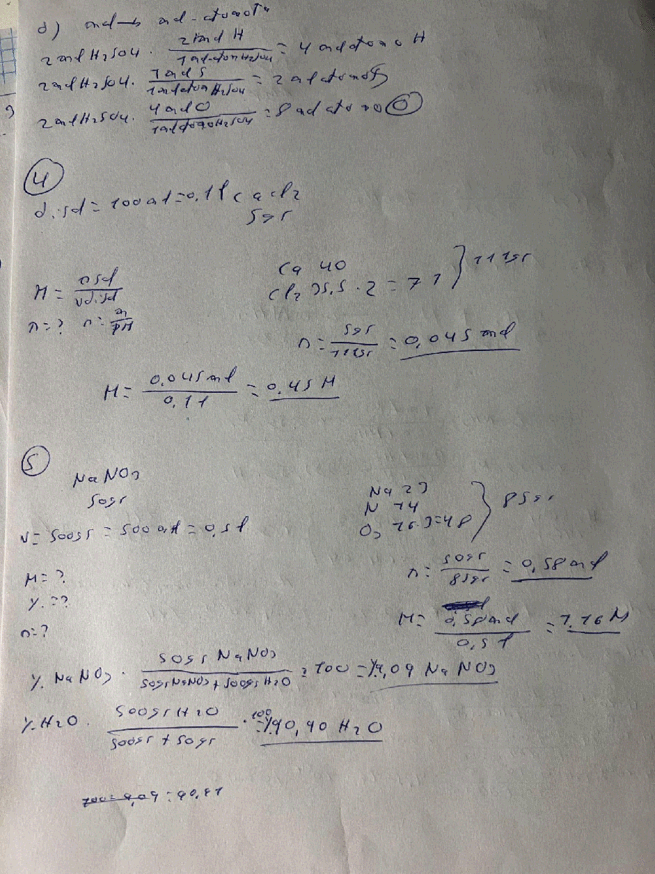 d) mol → mol-atomov
2 mol H2SO4 · 2 mol H / 1 mol atom H2SO4 = 4 mol atomo H
2 mol H2SO4 · 1 mol S / 1 mol atom H2SO4 = 2 mol atomo S
2 mol H2SO4 · 4 mol O / 1 mol atomo H2SO4 = 8 mol atomo O
4
d.isol = 100 ml = 0,1 l CaCl2
5 gr
Ca 40
Cl2 35,5 · 2 = 71 } 111 gr
M = n sol / V disol
n = ? n = m / PM
n = 5 gr / 111 gr = 0,045 mol
M = 0,045 mol / 0,1 l = 0,45 M
5
NaNO3
50 gr
V = 500 gr = 500 ml = 0,5 l
Na 23
N 14
O3 16·3=48 } 85 gr
M = ?
% = ?
n = ?
n = 50 gr / 85 gr = 0,58 mol
M = 0,58 mol / 0,5 l = 1,16 M
% NaNO3 · 50 gr NaNO3 / 50 gr NaNO3 + 500 gr H2O · 100 = % 9,09 NaNO3
% H2O · 500 gr H2O / 500 gr + 50 gr · 100 = % 90,90 H2O
100 - 9,09 = 90,91